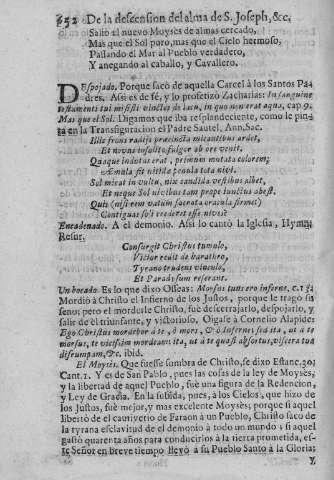 652 De la descension del alma de S. Joseph, &c.
Saliò el nuevo Moysès de almas cercado,
Mas que el Sol puro, mas que el Cielo hermoso,
Passando el Mar al Pueblo verdadero,
Y anegando al caballo, y Cavallero.
Despojado. Porque sacò de aquella Carcel à los Santos Pa-
dres. Assi es de fè, y lo profetizò Zacharias: In sanguine
testamenti tui misisti vinctos de lacu, in quo non erat aqua, cap. 9.
Mas que el Sol. Digamos que iba resplandeciente, como le pin-
ta en la Transfiguracion el Padre Sautel, Ann. Sac.
Illic frons radijs præcincta micantibus ardet,
Et novus insolito fulgor ab ore venit,
Quaque induitus erat, primum mutata colorem;
Æmula fit nitidæ penula tota nivi.
Sol micat in vultu, nix candida vestibus albet,
Et neque Sol nivibus tam prope iunctus abest.
Quis (nisi rem vatum sacrata oracula firment)
Contiguas soli crederet esse nives?
Encadenado. A el demonio. Assi lo cantò la Iglesia, Hymn.
Resur.
Consurgit Christus tumulo,
Victor redit de barathro,
Tyrannum trudens vinculo,
Et Paradysum reserans.
Un bocado. Es lo que dixo Osseas: Morsus tuus ero inferne. c. 13.
Mordiò à Christo el Infierno de los Justos, porque le tragò su
seno; pero el morderle Christo, fuè descerrajarlo, despojarlo, y
salir de èl triunfante, y victorioso. Oigase à Cornelio Alapide:
Ego Christus mordebor à te, ò mors, & ò Inferne; sed ita, ut à te
morsus, te vicissim mordeam: ita, ut à te quasi absortus, viscera tua
disrumpam, &c. ibid.
El Moysès. Que fuesse sombra de Christo, se dixo Estanc. 30.
Cant. 1. Y es de San Pablo, pues las cosas de la ley de Moysès,
y la libertad de aquel Pueblo, fuè una figura de la Redencion,
y Ley de Gracia. En la subida, pues, à los Cielos, que hizo de
los Justos, fuè mejor, y mas excelente Moysès; porque si aquel
libertò de el cautiverio de Faraon à un Pueblo, Christo sacò de
la tyrana esclavitud de el demonio à todo un mundo: si aquel
gastò quarenta años para conducirlos à la tierra prometida, es-
te Señor en breve tiempo llevò à su Pueblo Santo à la Gloria:
Y